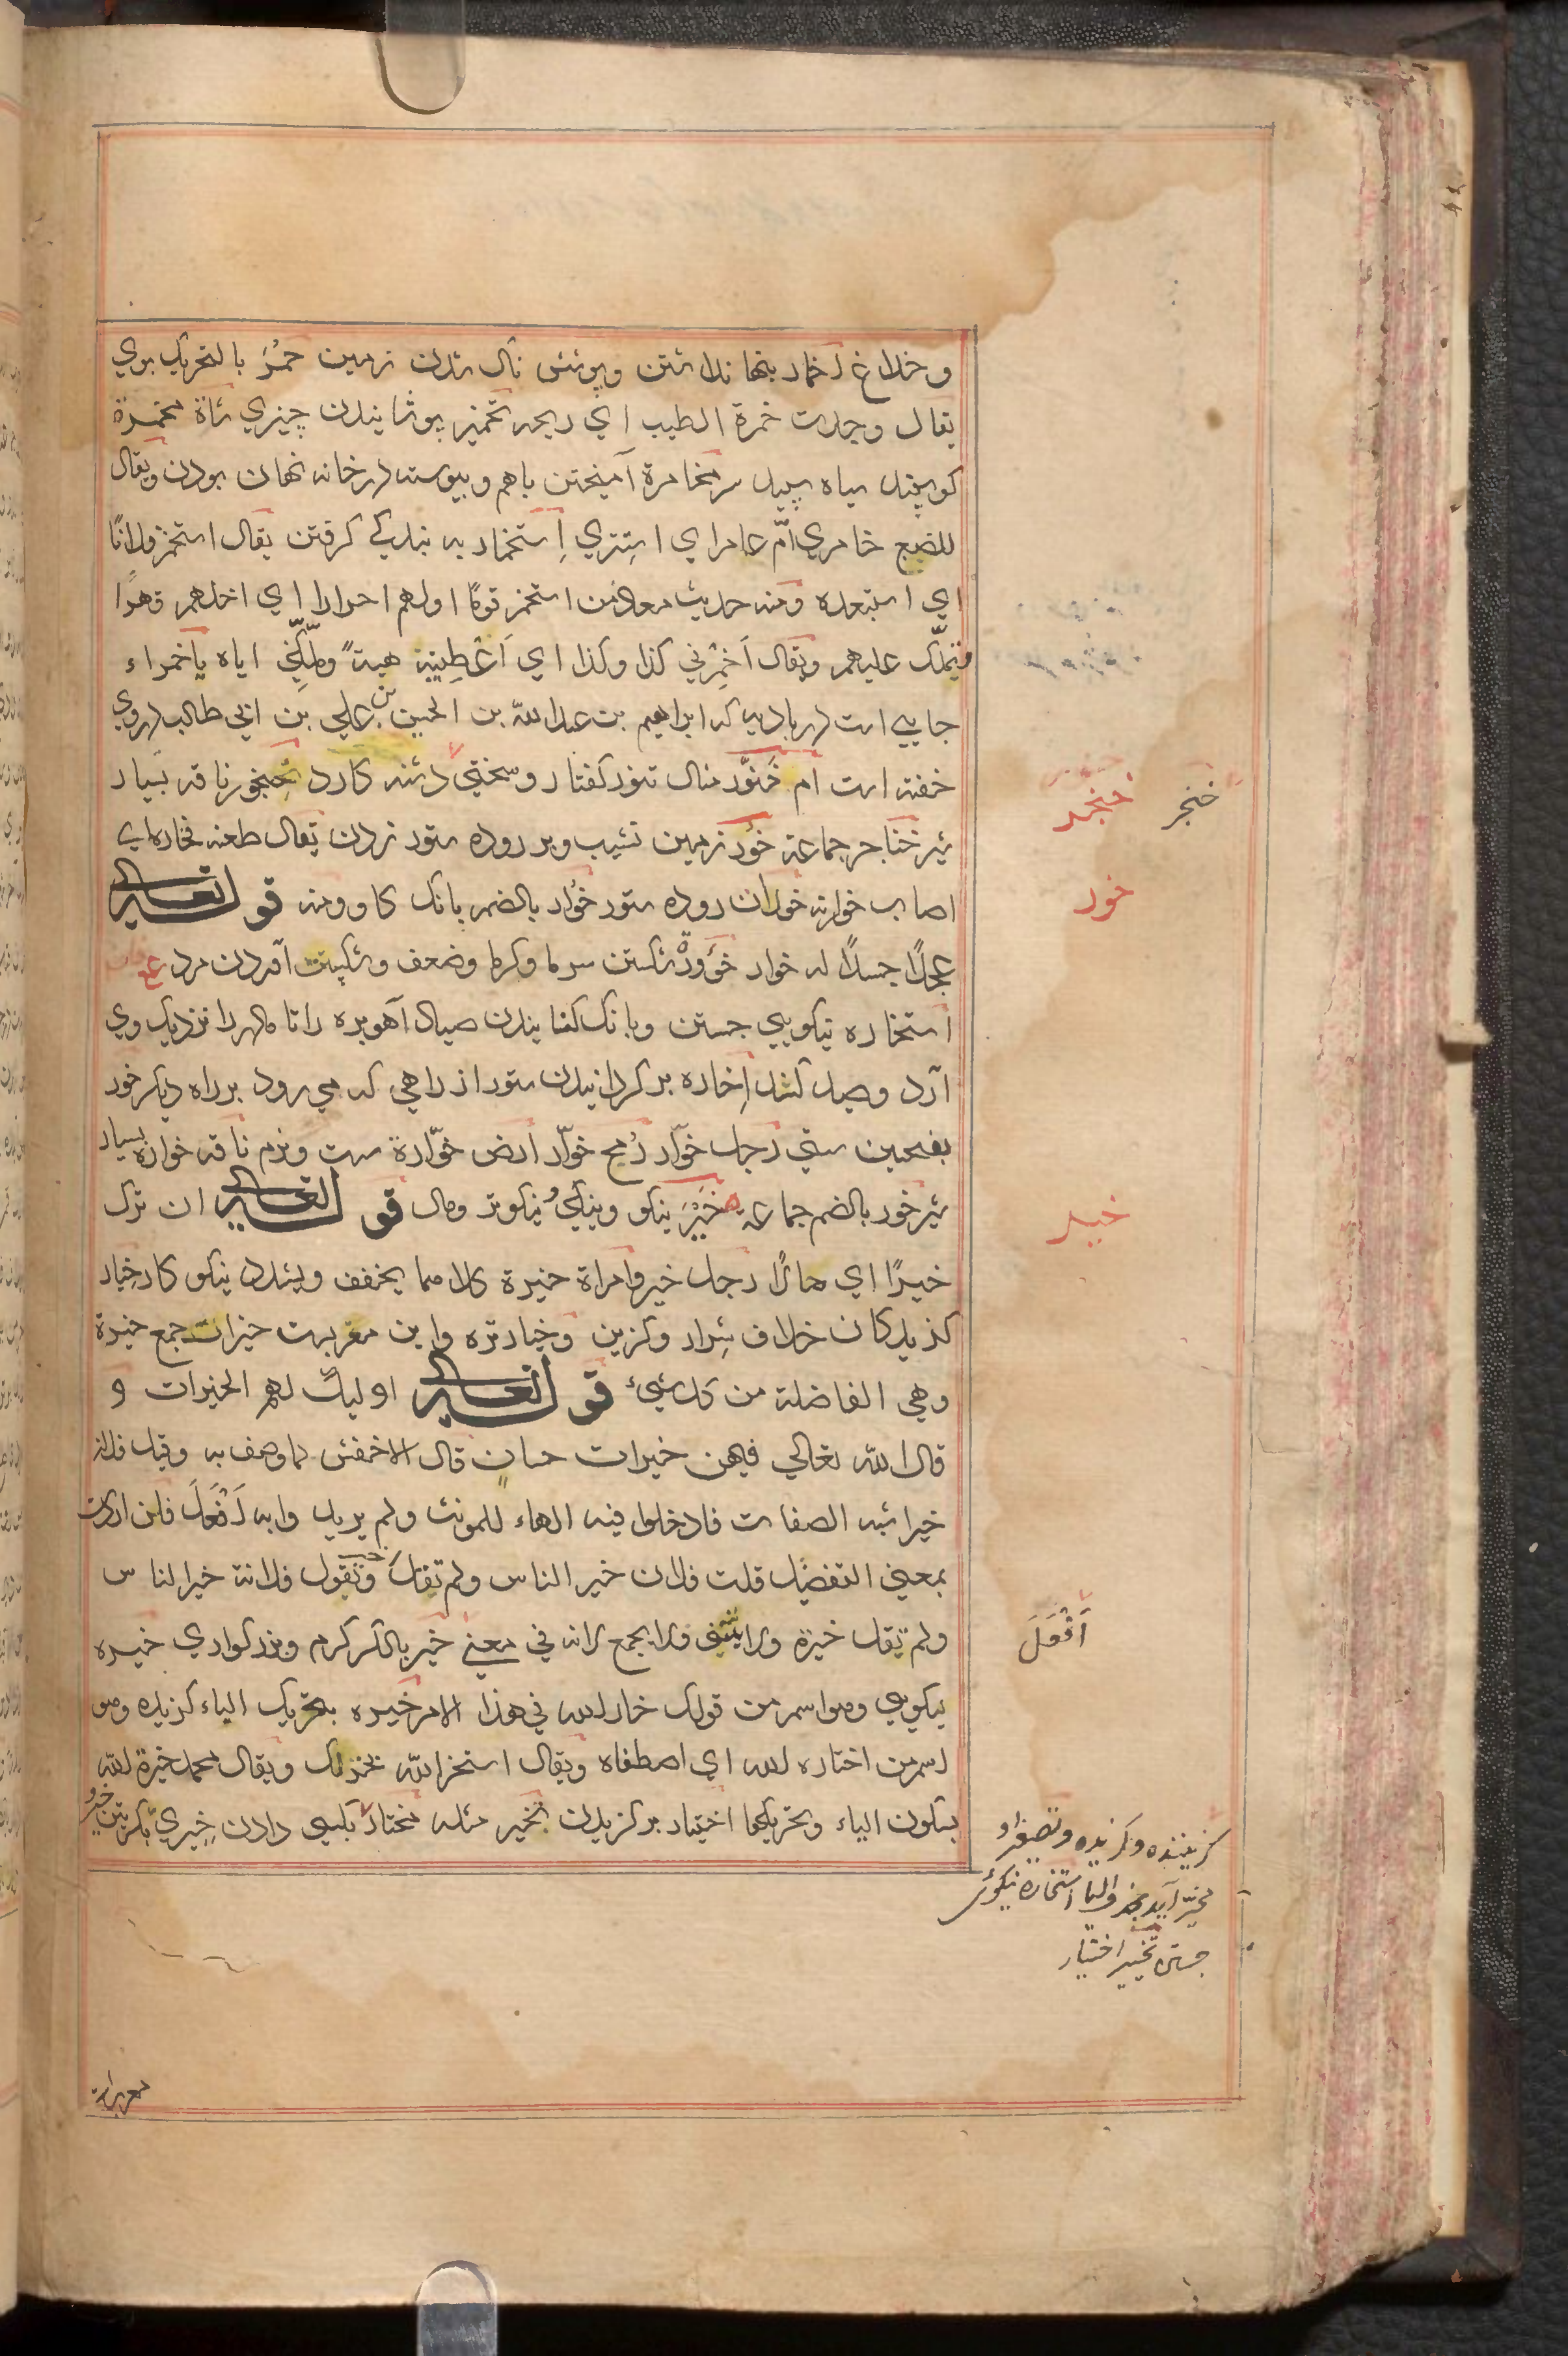 و خداع اخمار پنهان داشتن و پوشش ناک شدن زمین خَمَرٌ بالتحریک بوي
یقال وجدت خمرة الطیب اي ریحه تخمیر پوشانیدن چیزي شاة مخمرة
کوسپند سیاه سپید سر مخامرة آمیختن باهم و پیوسته در خانه نهان بودن ویقال
للضبع خامري اُمّ عامر اي استتري اِستخمار به بندکي کرفتن یقال استخمر فلانًا
اي استعبده ومنه حدیث معاذ من استخمر قومًا اولهم احرار اي اخذهم قهرًا
فتملّک علیهم ویقال اَخمِرني کذا وکذا اي اَعْطِینِیه هبةً وملّکني ایاه یاخمراء
جایي است در بادیه که ابراهیم بن عبدالله بن الحسین بن علي بن ابي طالب دروي
خفته است ام خَنوَّر مثال تنور کفتار و سختي دشنه کارد خنجور ناقه بسیار
شیر خناجر جماعة خَوْر زمین نشیب و بر روده ستور زدن یقال طعنه فخاره اي
اصاب خورانه خوران روده ستور خُوار بالضم بانک کاو ومنه قوله تعالی
عجلًا جسدًا له خوار خؤورٌ شکستن سرما وکرما وضعف و شکستن آمدن مرد ع
استخاره نیکویي جستن و بانک کنانیدن صیاد آهو بره را تا مادر را نزدیک وي
آرد و صید کند اِخاره بر کردانیدن ستور از راهي که مي رود بر راه دیکر خور
بفتحین سستي رجل خوّار رُمح خوّار ارض خوّارة سست ونرم ناقه خواره بسیار
شیر خور بالضم جماعة خَیْرٌ نیکو ونیکي ونیکوتر ومال قوله تعالی ان ترک
خیرًا اي مالًا رجل خیر وامراة خیرة کلاهما یخفف ویشدد نیکو کار خِیار
کزیدکان خلاف شِرار وکزین و خیار تره و این معربست خیرات جمع خیرة
وهي الفاضلة من کل شيء قوله تعالی اولیک لهم الخیرات و
قال الله تعالي فیهن خیرات حسان قال الاخفش لما وصف به وقیل فلان
خیر اشبه الصفات فادخلوا فیه الهاء للمونث ولم یرید وا به اَفْعَلَ فان اردت
بمعني التفضیل قلت فلان خیر الناس ولم تقل وتقول فلانة خیر الناس
ولم تقل خیرة ولا یثنی ولا یجمع لانه في معني خیر بالکسر کرم وبزرکواري خیره
نیکویي وهو اسم من قولک خار الله في هذا الامر خیره بتحریک الیاء کزیده وهو
اسم من اختاره الله اي اصطفاه ویقال استخر الله یخر لک ویقال محمد خیرة الله
بسکون الیاء وتحریکها اختیار بر کزیدن تخیر مثله مختار بکسي دادن خِیريّ
خنجر خنجر
خور
خیر
اَفْعَلَ
کزیننده وکزیده وتصغیر او
مخیّر آید بحذف الیا استخاره نیکوئي
جستن تخییر اختیار
معربست